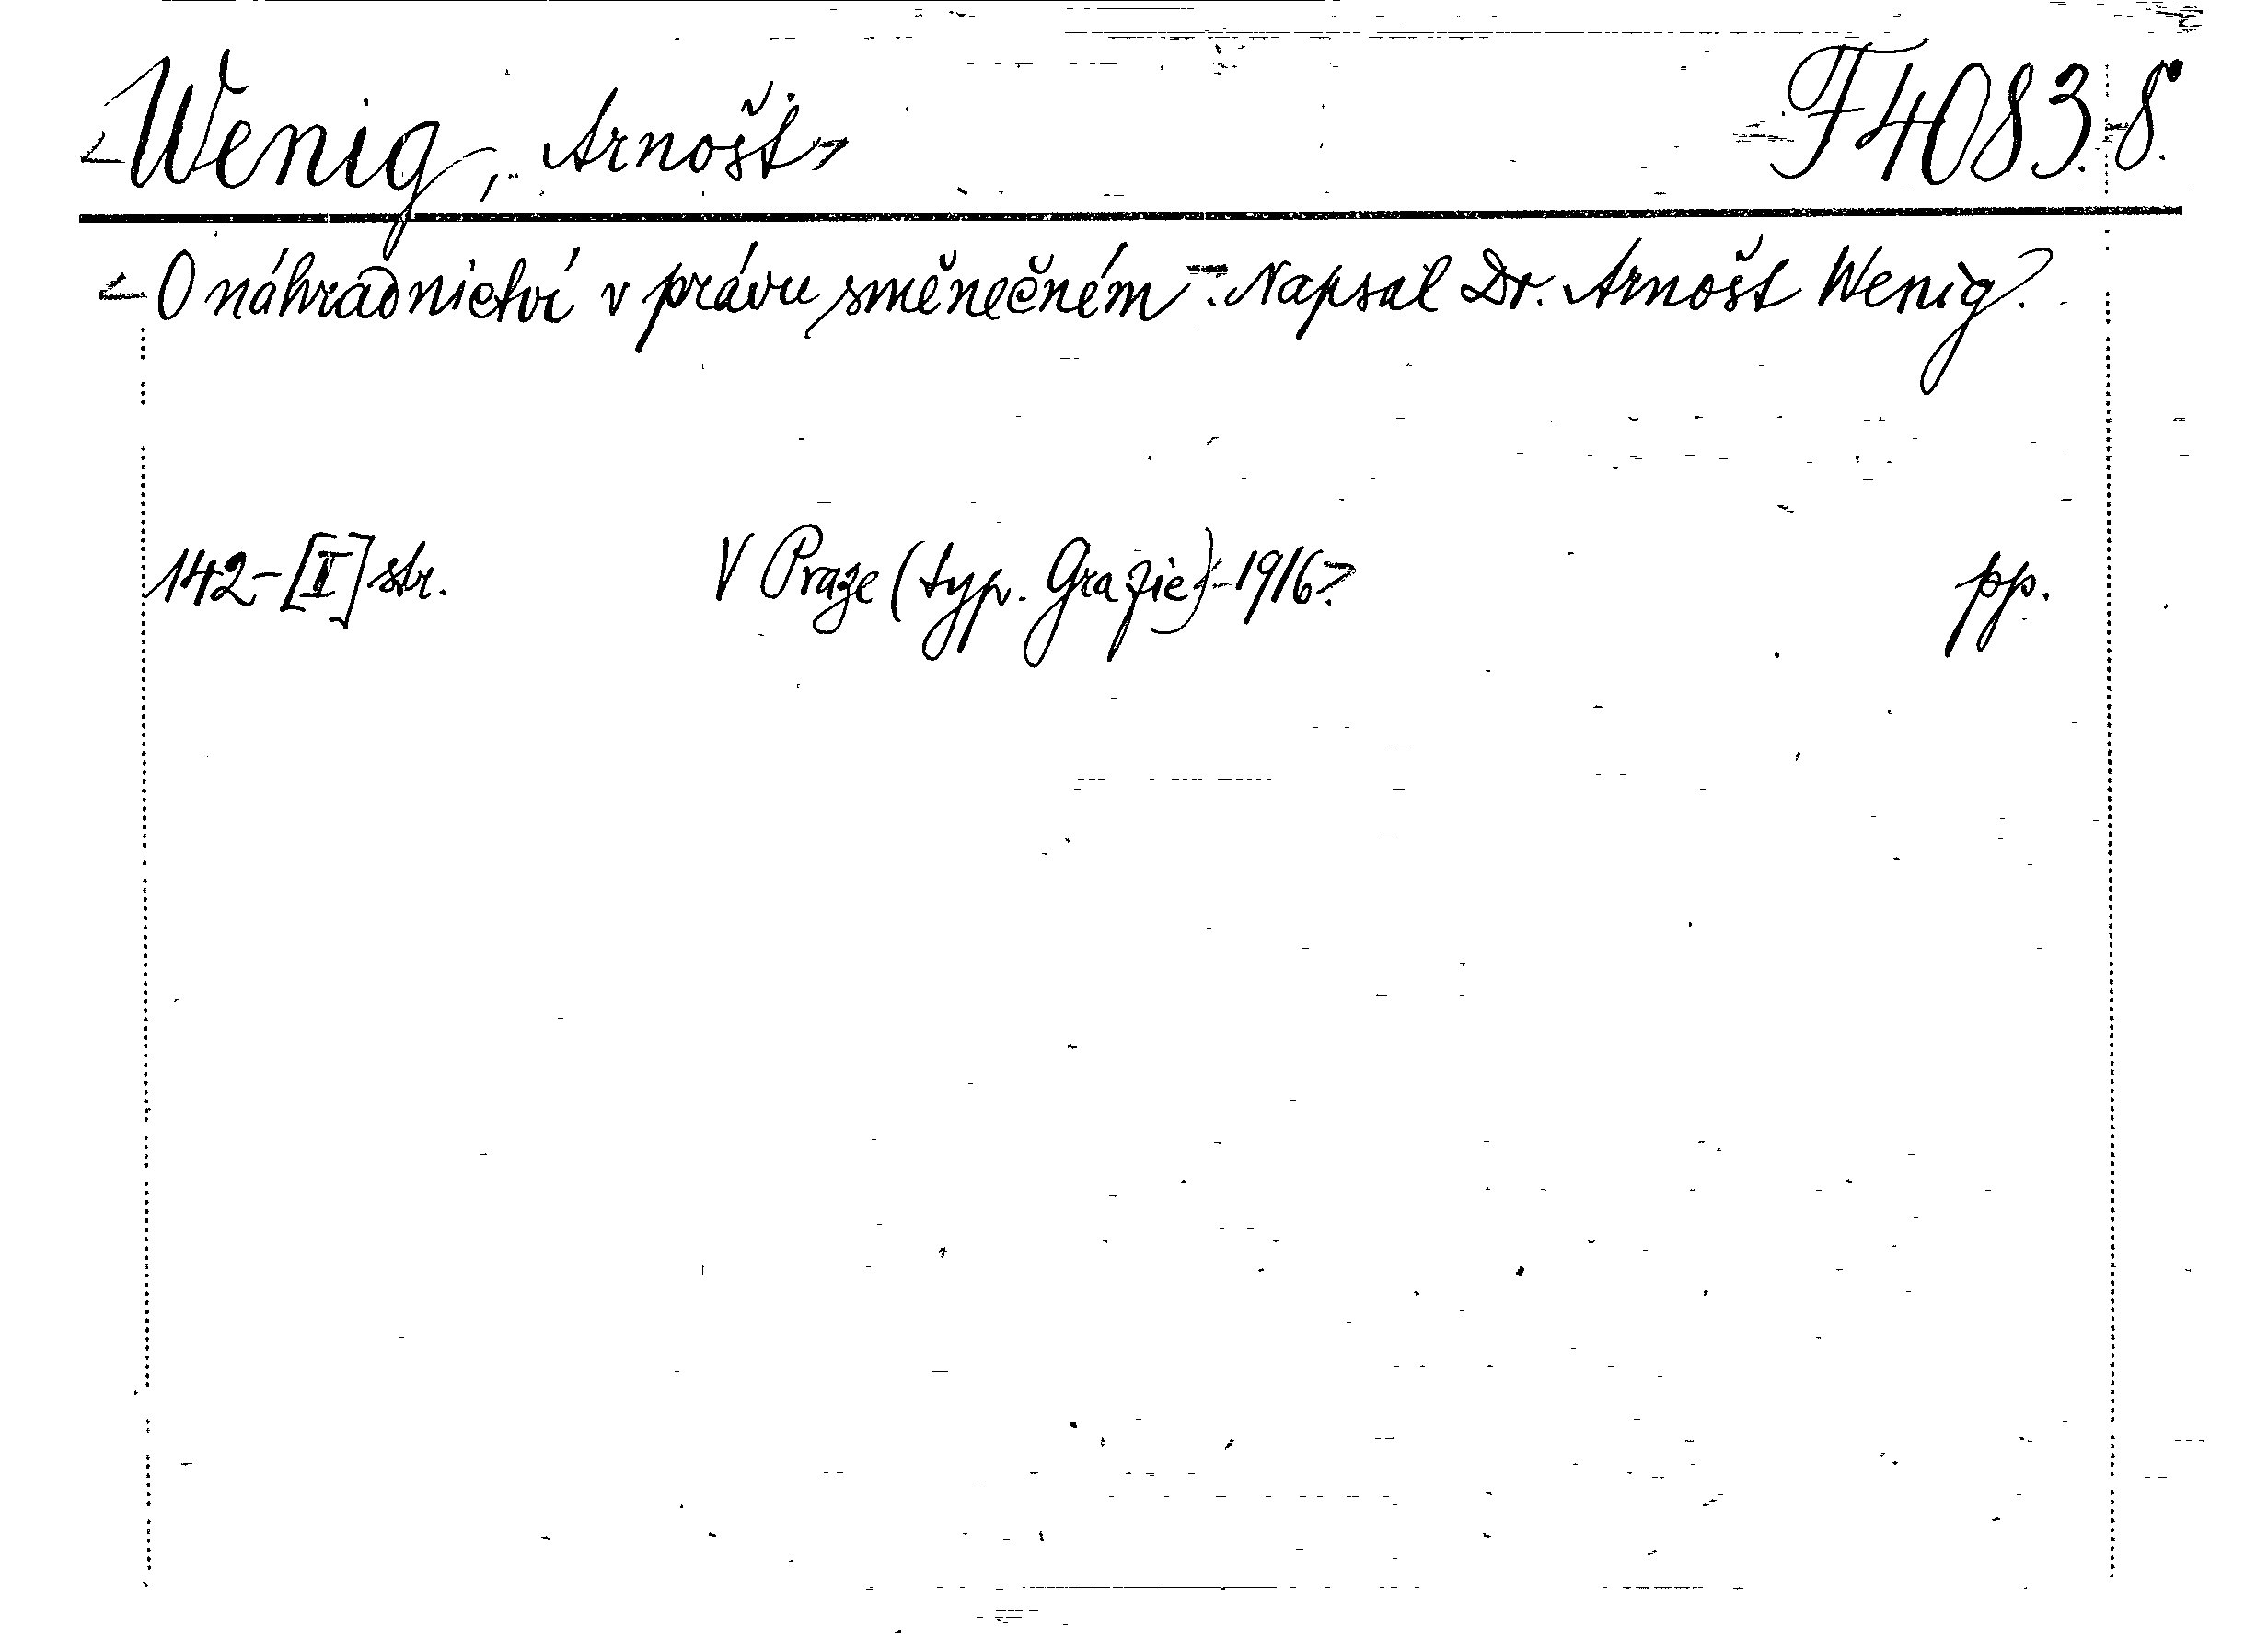 Wenig, Arnošt F 4083. 8°.
O náhradnictví v právu směnečném. Napsal Dr. Arnošt Wenig.
142-[II] str. V Praze (typ. Grafie) 1916. pp.